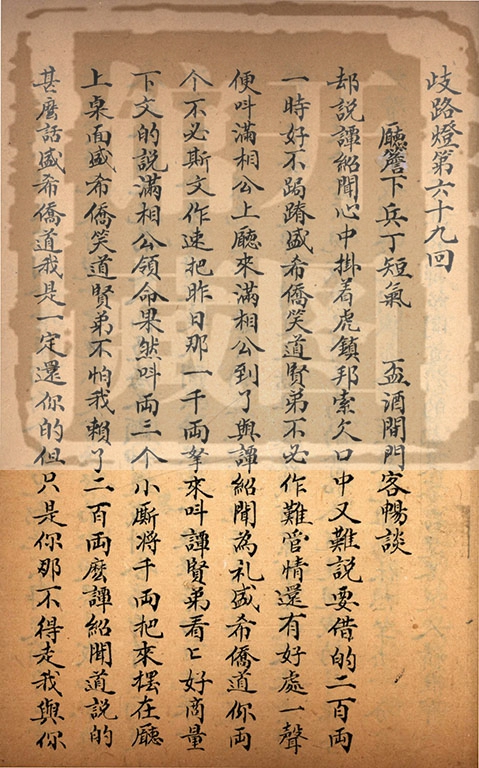 歧路燈第六十九回
廳簷下兵丁短氣　盃酒間門客暢談
却説譚紹聞心中掛着虎鎮邦索欠口中又難説要借的二百両
一時好不跼蹐盛希僑笑道賢弟不必作難管情還有好處一聲
便叫滿相公上廳來滿相公到了與譚紹聞為礼盛希僑道你両
个不必斯文作速把昨日那一千両拏來叫譚賢弟看〻好商量
下文的説滿相公領命果然叫両三个小厮将千両把來擺在廳
上桌面盛希僑笑道賢弟不怕我賴了二百両麽譚紹聞道説的
甚麽話盛希僑道我是一定還你的但只是你那不得走我與你